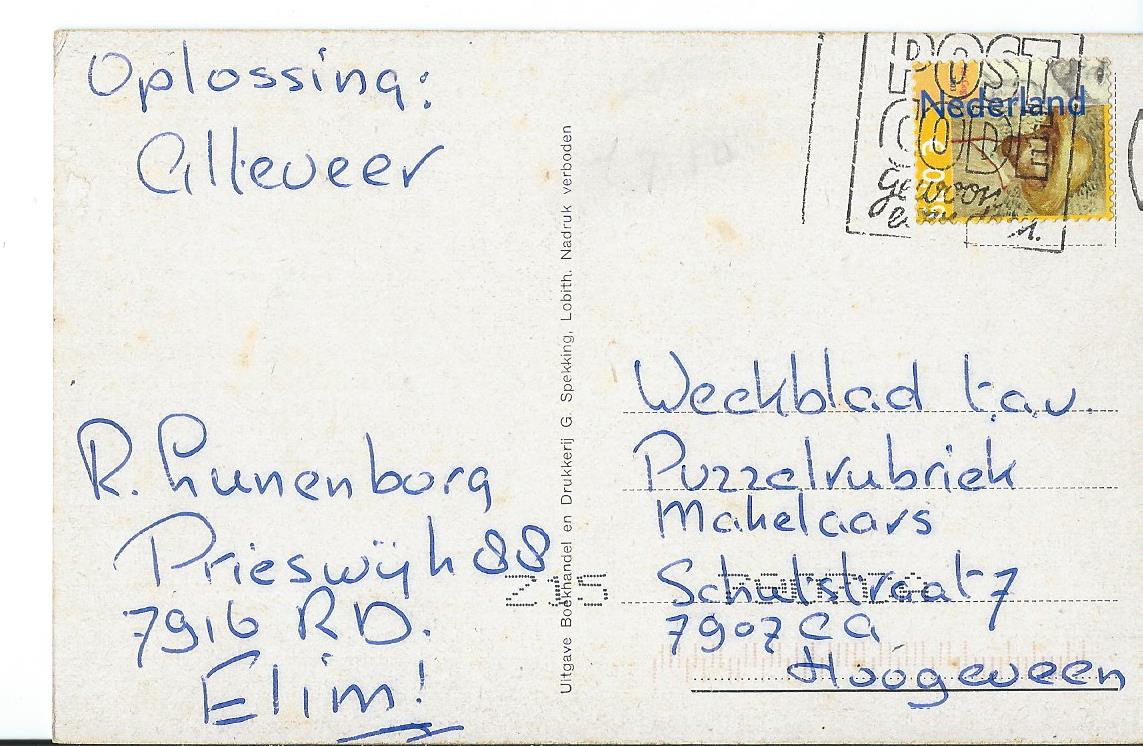 Oplossing:
Alteveer
R. Lunenborg
Prieswijk 88
7916 RD.
Elim!
Uitgave Boekhandel en Drukkerij G. Spekking, Lobith. Nadruk verboden
POST
CODE
Gewoon
Nederland
Weekblad t.a.v.
Puzzelrubriek
Makelaars
Schutstraat 7
7907 CA
Hoogeveen